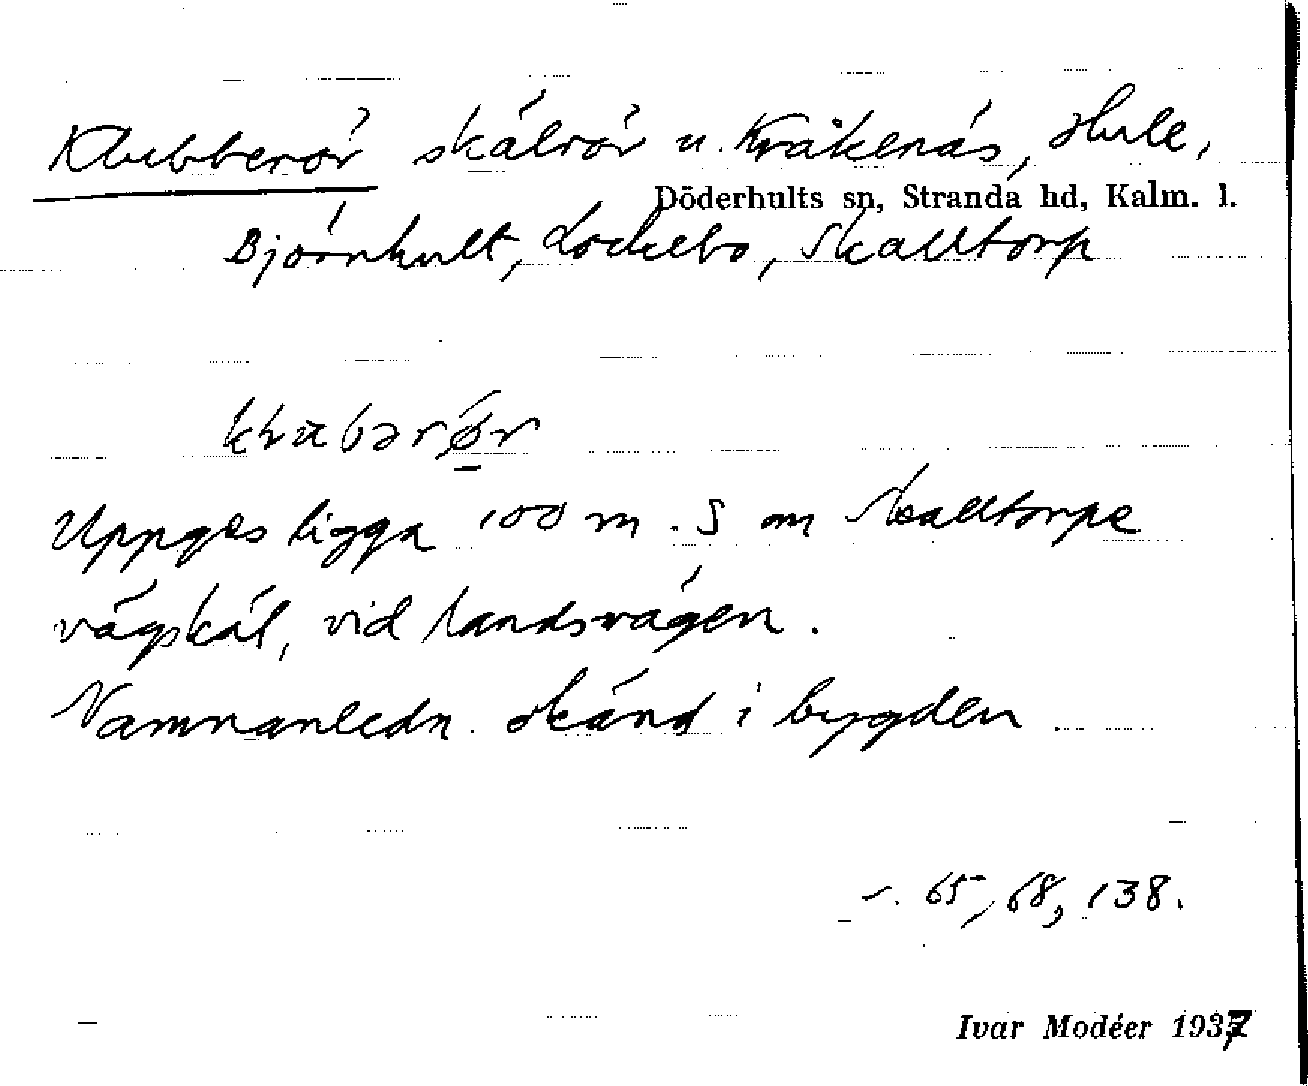 Klubberör skälrör u. Kråkenäs, Hule,
Döderhults sn, Stranda hd, Kalm. l.
Björnhult, Lockebo, Skalltorp
Uppges ligga 100 m. S om Skalltorps
vägskäl, vid landsvägen.
Namnanledn. okänd i bygden
s. 65, 68, 138.
Ivar Modéer 1937